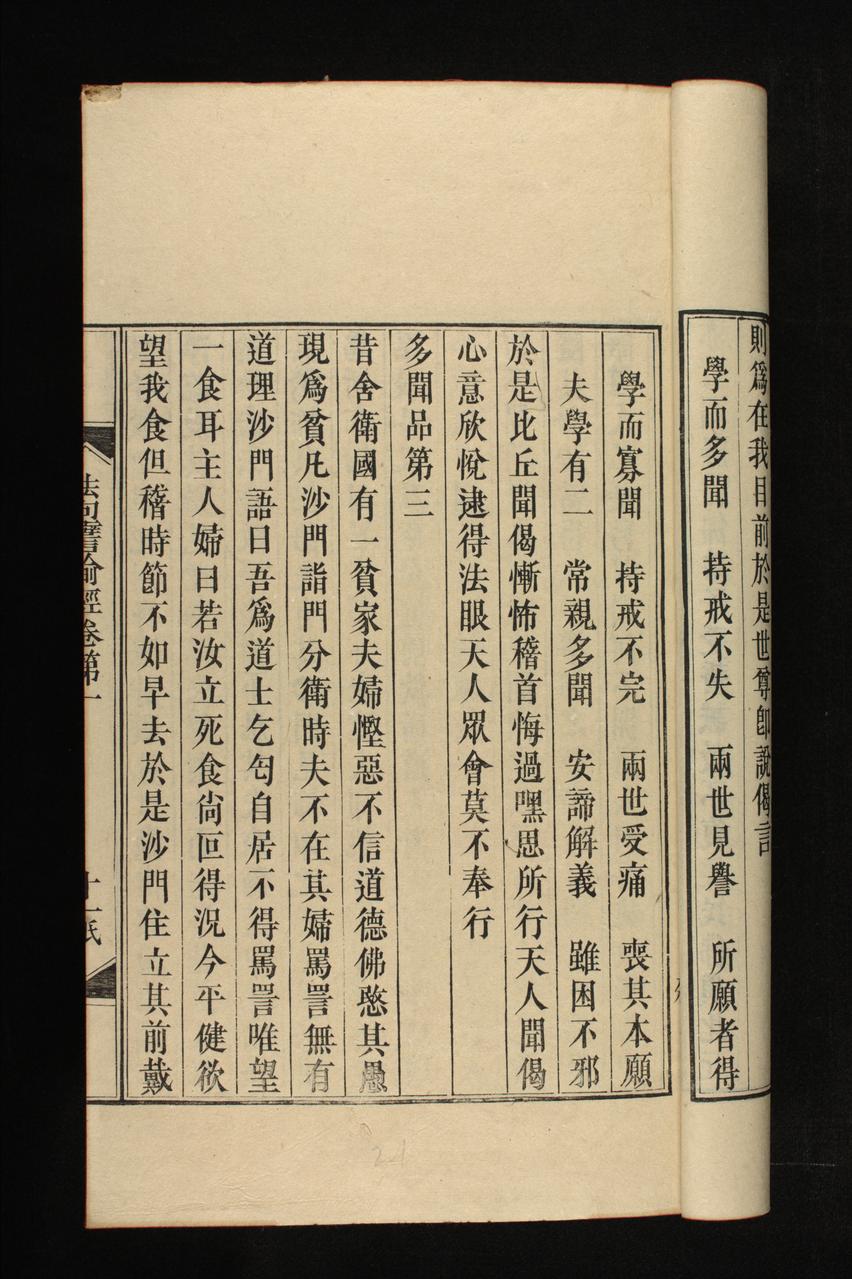 則為在我目前於是世尊即說偈言
學而多聞　持戒不失　兩世見譽　所願者得
學而寡聞　持戒不完　兩世受痛　喪其本願
夫學有二　常親多聞　安諦解義　雖困不邪
於是比丘聞偈慚怖稽首悔過嘿思所行天人聞偈
心意欣悅逮得法眼天人眾會莫不奉行
多聞品第三
昔舍衛國有一貧家夫婦慳惡不信道德佛愍其愚
現為貧凡沙門詣門分衛時夫不在其婦罵詈無有
道理沙門語曰吾為道士乞匄自居不得罵詈唯望
一食耳主人婦曰若汝立死食尚叵得況今平健欲
望我食但稽時節不如早去於是沙門住立其前戴
法句譬喻經卷第一
十一
24